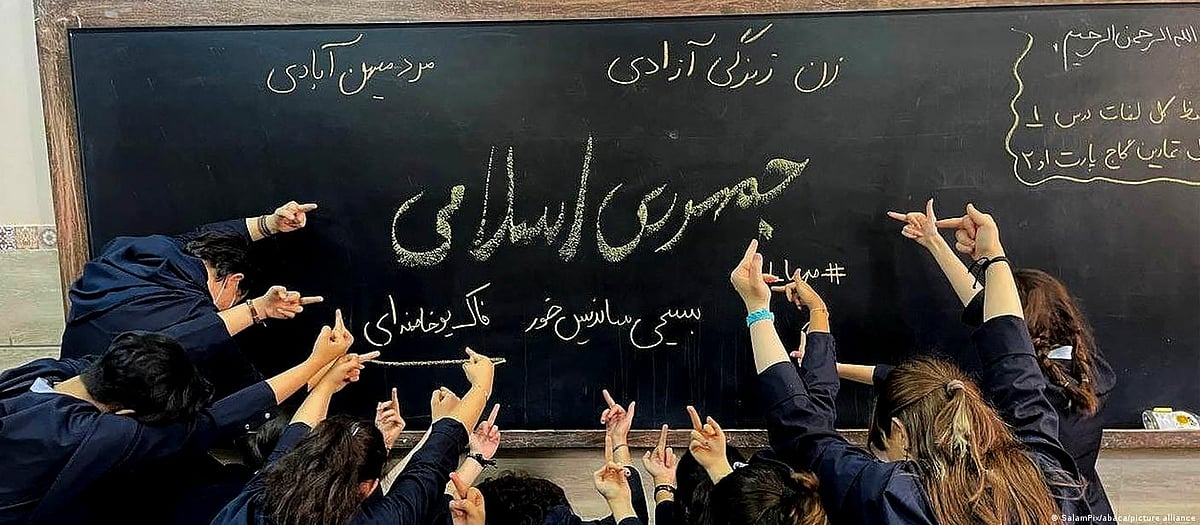 الله الرحمن الرحیم
کل لغات درس ۱
تمارین گاج پارت ۱و۲
زن زندگی آزادی
مرد میهن آبادی
جمهوری اسلامی
#مهسا
بسیجی ساندیس خور
فاک یو خامنه ای
SalamPix/abaca/picture alliance